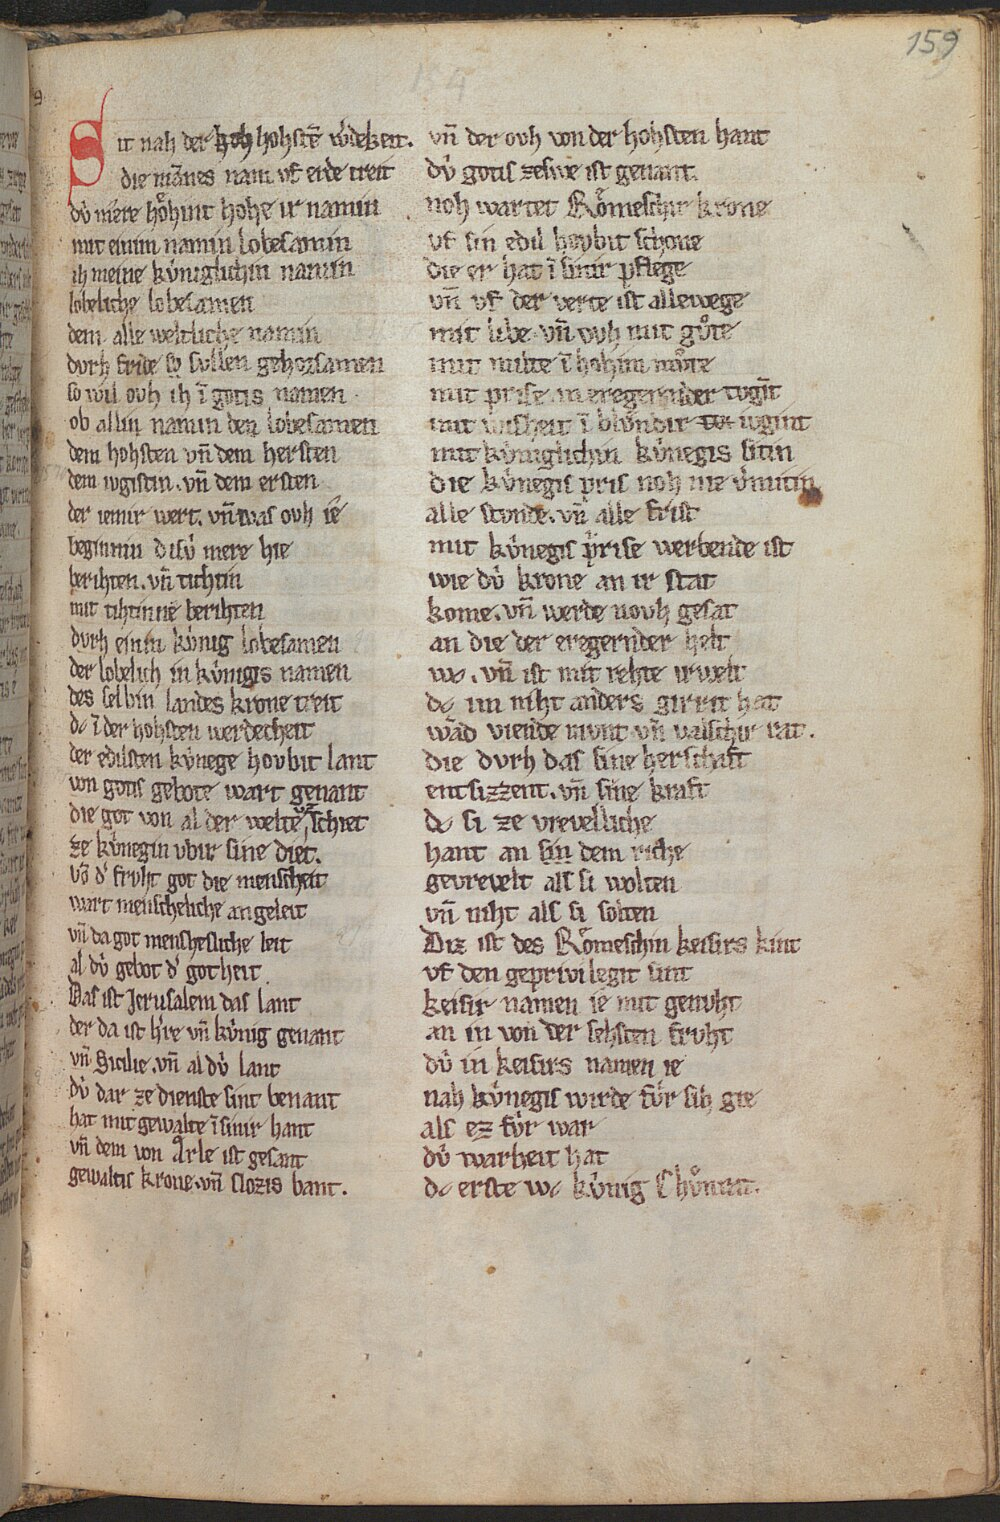 159
Sit nah der hohstē wˢdekeit.
die mānes nam vf erde treit
dv̍ mere hoͤhint hohe ir namin
mit einim namin lobesamin
ih meine kv̍niglichin namin
lobeliche lobesamen
dem alle weltliche namin
dvrh fride so svllen gehorsamen
so wil ovh ih ī gotis namen
ob allin namin den lobesamen
dem hohsten vn̄ dem hersten
dem ivgistin. vn̄ dem ersten
der iemir wert. vn̄ was ovh ie
beginnin disv̍ mere hie
berihten. vn̄ tichtin
mit tihtinne berihten
dvrh einin kv̍nig lobesamen
der lobelich in kv̍nigis namen
des selbin landes krone treit
dc ī der hohsten werdecheit
der edilsten kv̍nege hovbit lant
von gotis gebote wart genant
die got von al der welte schiet
ze kv̍negin vbir sine diet.
vō dˢ frvht got die menscheit
wart menscheliche angeleit
vn̄ da got menshesliche leit
al dv̍ gebot dˢ gotheit
Das ist Jerusalem das lant
der da ist hˢre vn̄ kv̍nig genant
vn̄ Sicilie. vn̄ al dv̍ lant
dv̍ dar ze dienste sint benant
hat mit gewalte ī sinir hant
vn̄ dem von Arle ist gesant
gewaltis krone. vn̄ slozis bant.
vn̄ der ovh von der hohsten hant
dv̍ gotis zeswe ist genant.
noh wartet Roͤmeschir krone
vf sin edil hovbit schone
die er hat ī sinir pflege
vn̄ vf der verte ist allewege
mit libe. vn̄ ovh mit gvͦte
mit milte ī hohim mvͦte
mit prise. in eregernder tvgn̄t
mit wisheit ī blvndir ivgint
mit kv̍niglichin kv̍negis sitin
die kv̍negis pris noh nie vˢmitin
alle stvnde. vn̄ alle frist
mit kv̍negis prise werbende ist
wie dv̍ krone an ir stat
kome. vn̄ werde novh gesat
an die der eregernder helt
wc. vn̄ ist mit rehte irwelt
dc im niht anders girrit hat
wād viende mvnt vn̄ valschir rat.
die dvrh das sine herschaft
entsizzent. vn̄ sine kraft
dc si ze vrevelliche
hant an sin dem riche
gevrevelt als si wolten
vn̄ niht als si solten
Diz ist des Roͤmeschin keisirs kint
vf den geprivilegit sint
keisir namen ie mit genvht
an in von der sehsten frvht
dv̍ in keisirs namen ie
nah kv̍negis wirde fv̍r sih gie
als ez fv̍r war
dv̍ warheit hat
dc erste wc kv̍nig Chvͦnrat.